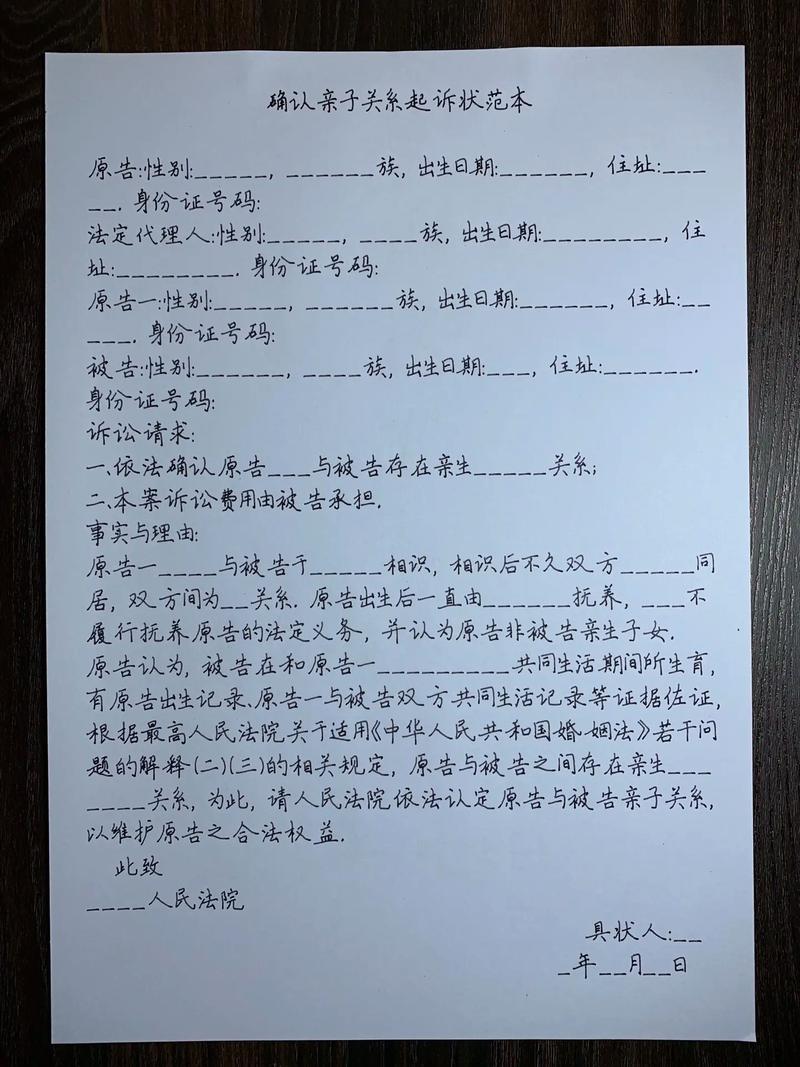 确认亲子关系起诉状范本
原告:性别:_____, ______族, 出生日期:______, 住址:___
__. 身份证号码:
法定代理人:性别:_____, ____族, 出生日期:________, 住
址:________. 身份证号码:
原告一:性别:_____, ______族, 出生日期:______, 住址:__
____. 身份证号码:
被告:性别:______, ____族, 出生日期:___, 住址:______.
身份证号码:
诉讼请求:
一.依法确认原告___与被告存在亲生_____关系;
二.本案诉讼费用由被告承担.
事实与理由:
原告一____与被告于_____相识, 相识后不久双方_____同
居, 双方间为__关系. 原告出生后一直由______抚养, ___不
履行抚养原告的法定义务, 并认为原告非被告亲生子女.
原告认为, 被告在和原告一_________共同生活期间所生育,
有原告出生记录、原告一与被告双方共同生活记录等证据佐证,
根据最高人民法院关于适用《中华人民共和国婚姻法》若干问
题的解释(二)(三)的相关规定, 原告与被告之间存在亲生___
____关系, 为此, 请人民法院依法认定原告与被告亲子关系,
以维护原告之合法权益.
此致
____人民法院
具状人:__
_年__月__日